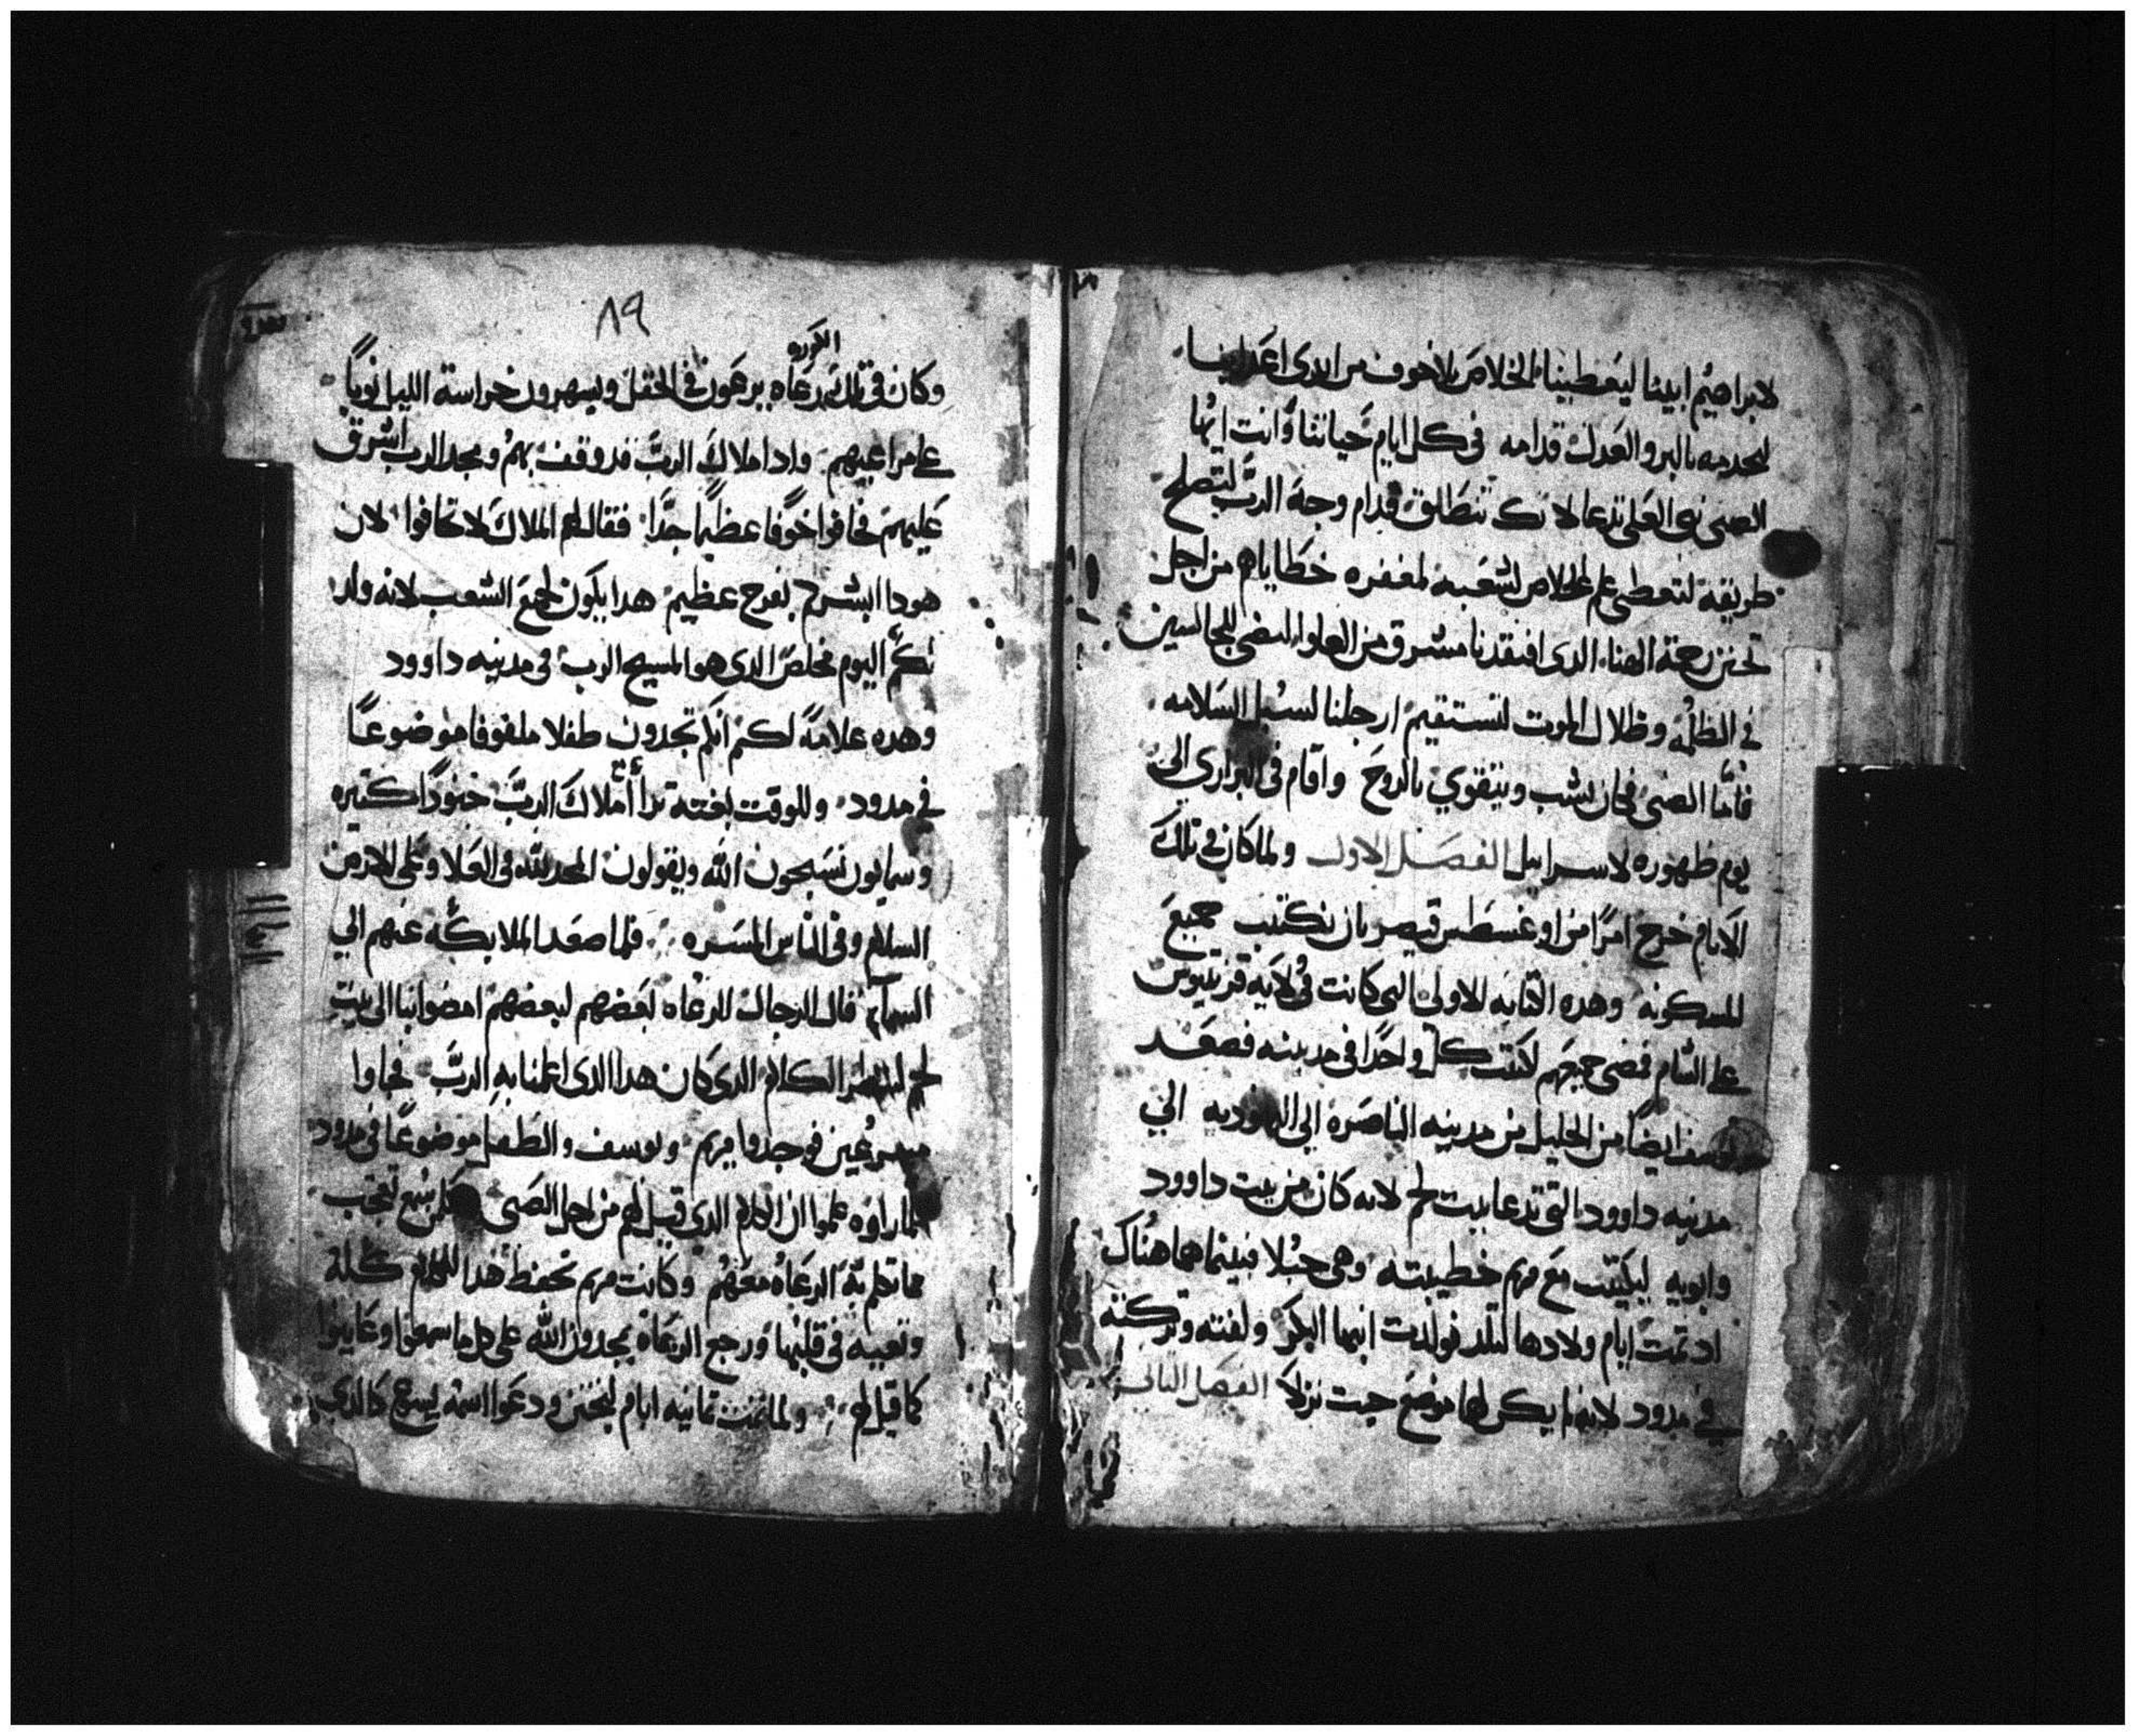 لابراهيم ابينا ليعطينا الخلاص بلا خوف من ايدى اعدائنا
لنخدمه بالبر والعدل قدامه فى كل ايام حياتنا وانت ايها
الصبى نبى العلى تدعا لانك تنطلق قدام وجه الرب لتصلح
طريقه لتعطى علم الخلاص لشعبه لمغفره خطاياهم من اجل
تحنن رحمة الهنا الدى افتقدنا مشرق من العلو ليضى للجالسين
فى الظلمه وظلال الموت لتستقيم ارجلنا لسبل السلامه
فاما الصبى فكان يشب ويتقوي بالروح واقام فى البرارى الى
يوم ظهوره لاسراييل الفصل الاول ولما كان فى تلك
الايام خرج امرًا من اوغسطس قيصر بان تكتتب جميع
المسكونه وهده الكتابه الاولى التى كانت فى ولايه قرنيوس
على الشام فمضى جميعهم لتكتتب كل واحدًا فى مدينته فصعد
يوسف ايضا من الجليل من مدينه الناصره الى اليهوديه الى
مدينه داوود التى تدعا بيت لحم لانه كان من بيت داوود
وابويه ليكتتب مع مريم خطيبته وهى حبلا فبينما هما هناك
اد تمت ايام ولادها لتلد فولدت ابنها البكر ولفته وتركته
فى مدود لانه لم يكن لهما موضع حيت نزلا الفصل التانى
٨٩
الكوره
وكان فى تلك رعاه يرعون فى الحقل ويسهرون حراسة الليل نوبًا
على مراعيهم وادا ملاك الرب قد وقف بهم ومجد الرب اشرق
عليهم فخافوا خوفًا عظيما جدًا فقال لهم الملاك لا تخافوا لان
هودا ابشركم بفرح عظيم هدا يكون لجميع الشعب لانه ولد
لكم اليوم مخلص الدى هو المسيح الرب فى مدينه داوود
وهده علامة لكم انكم تجدون طفلا ملفوفا موضوعًا
فى مدود وللوقت بغتة ترأا مع ملاك الرب جنودًا كتيره
وسمايون يسبحون الله ويقولون المجد لله فى العلا وعلى الارض
السلام وفى الناس المسره فلما صعد الملايكه عنهم الى
السمآء قال الرجال الرعاه بعضهم لبعضهم امضوا بنا الى بيت
لحم لننظر الكلام الدى كان هدا الدى اعلمنا به الرب فجاوا
مسرعين فوجدوا مريم ويوسف والطفل موضوعًا فى مدود
فلما راوه علموا ان الكلام الدى قيل لهم من اجل الصبى وكلمن سمع تعجب
مما تكلم به الرعاه معهم وكانت مريم تحفظ هدا الكلام كله
وتعييه فى قلبها ورجع الرعاه يمجدون الله على كل ما سمعوا وعاينوا
كما قيل لهم ولما تمت تمانيه ايام ليختن ودعوا اسمه يسوع كالدى